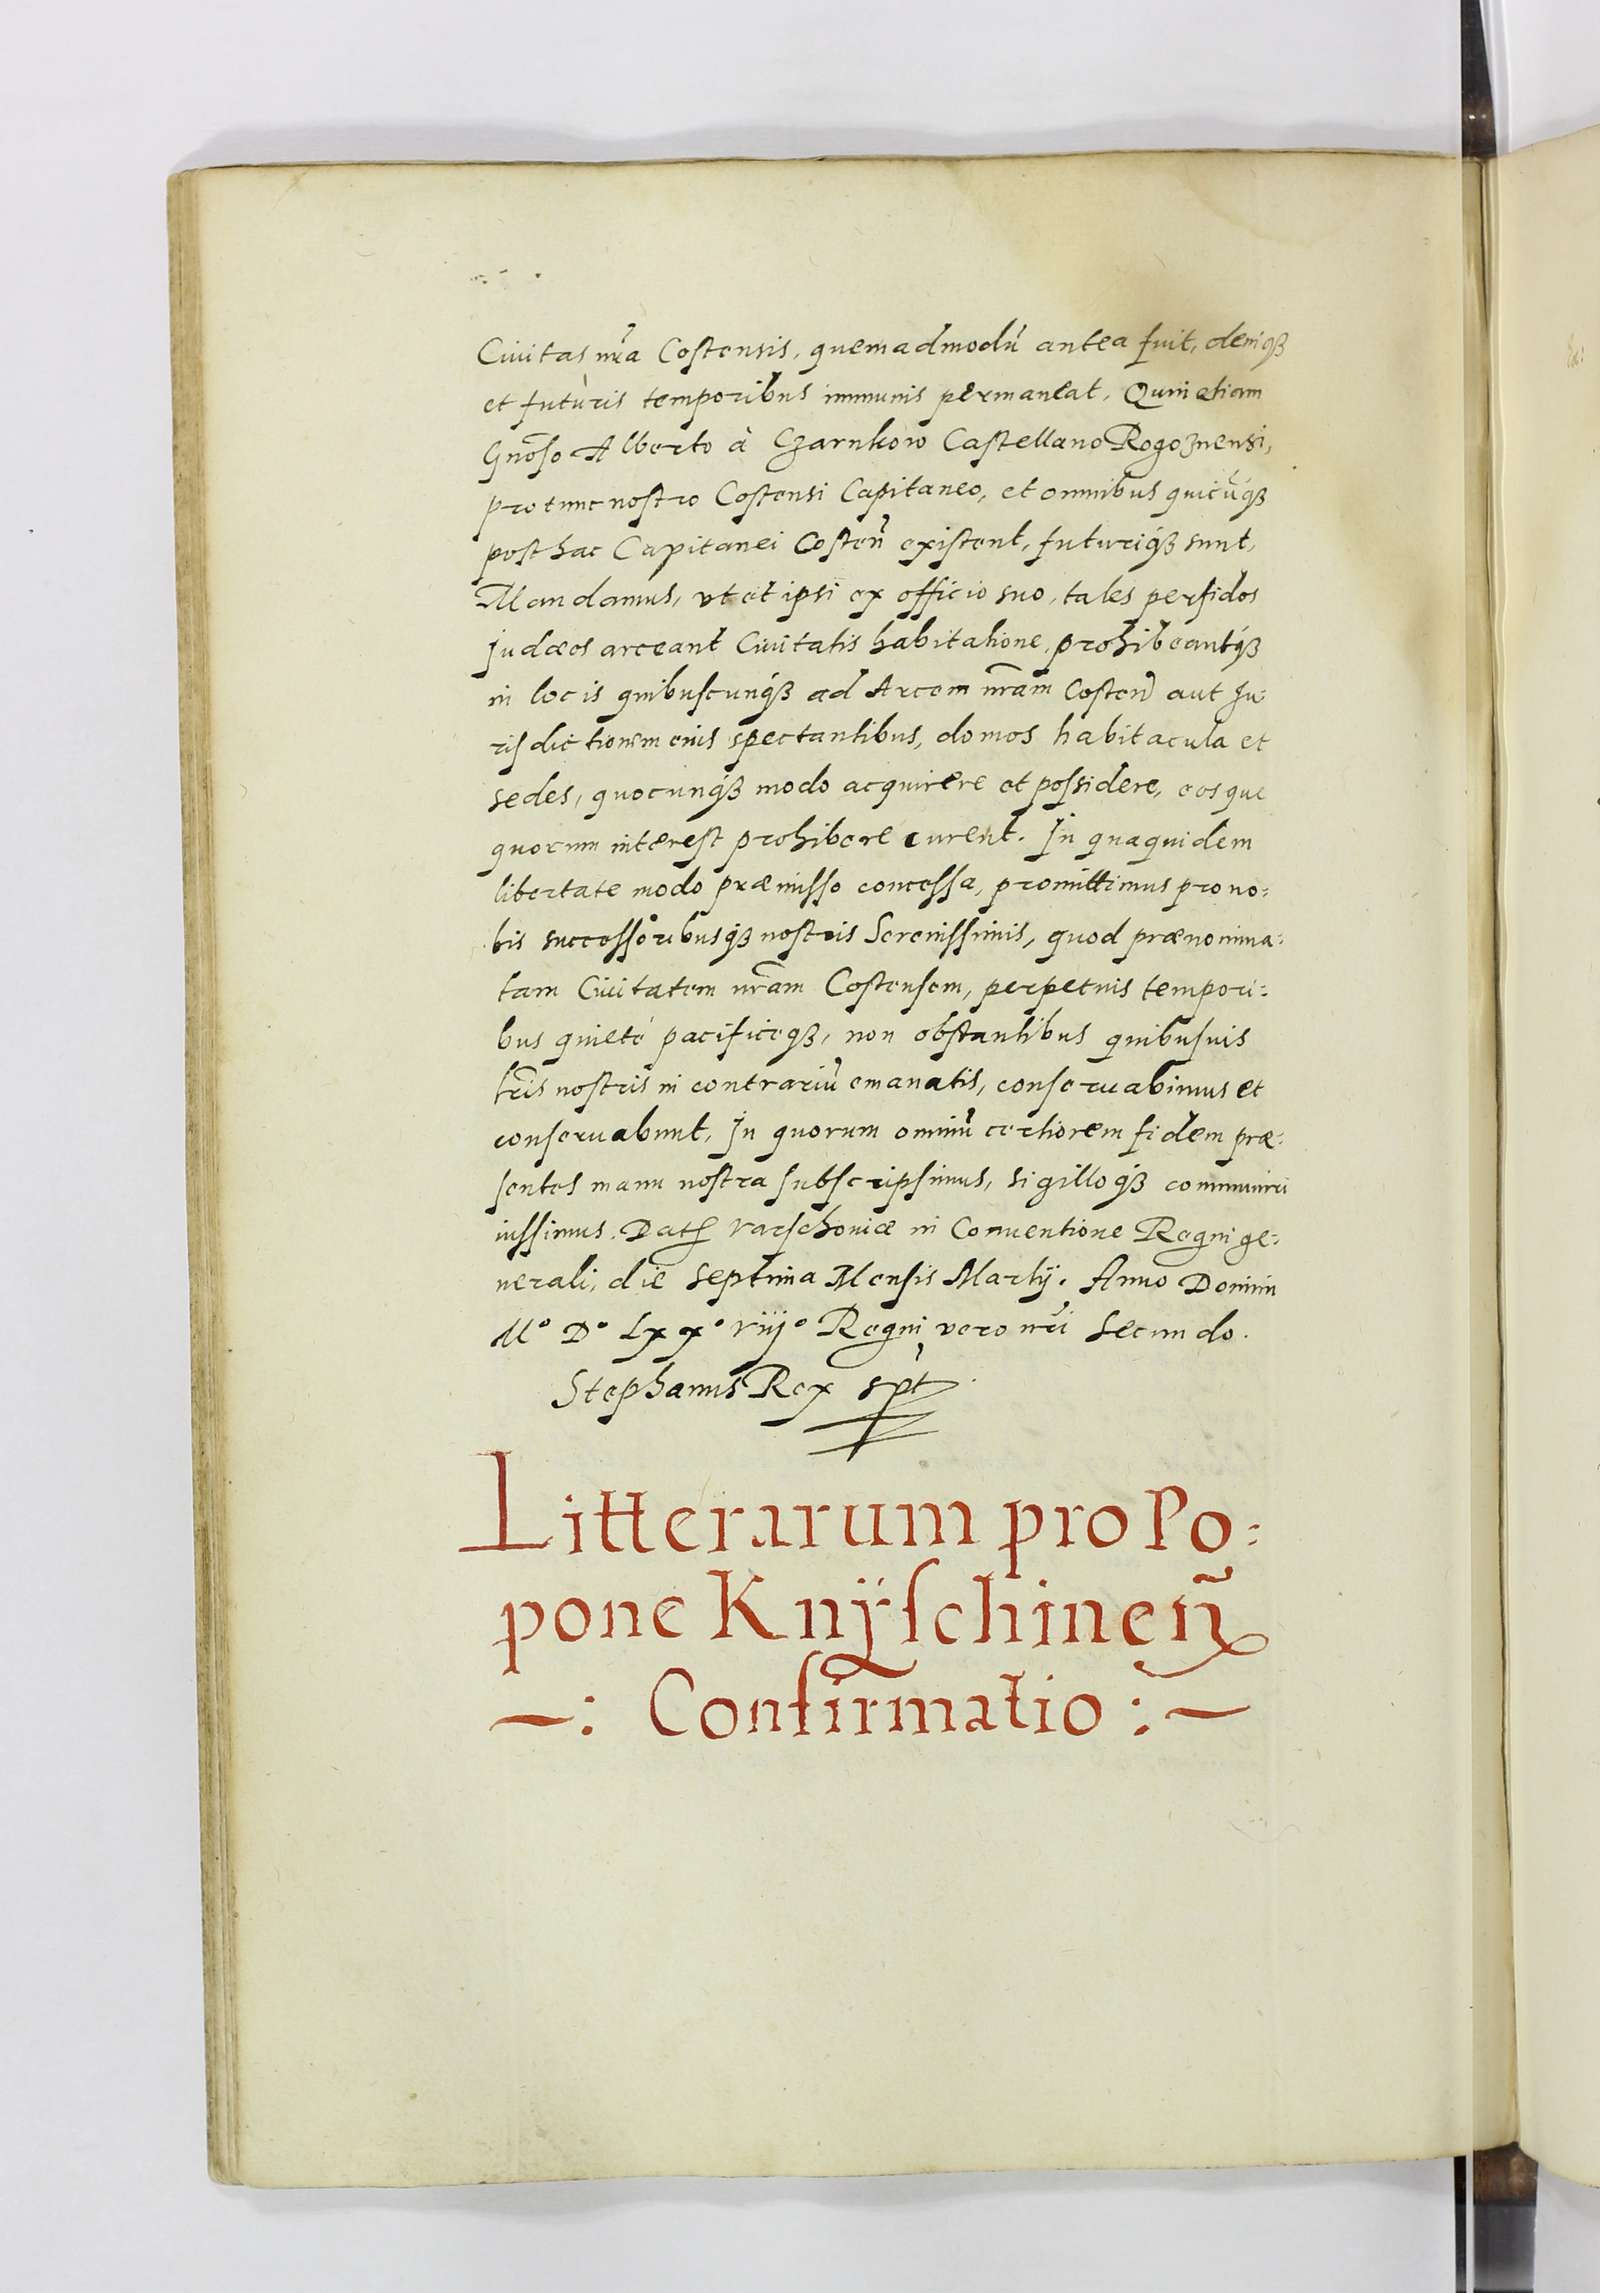 Ciuitas nr̃a Costensis, quemadmodũ antea fuit, deniqȝ
et futuris temporibus immunis permaneat, Quin etiam
Gnõso Alberto à Czarnkow Castellano Rogoznensi,
pro tunc nostro Costensi Capitaneo, et omnibus quicũqȝ
posthac Capitanei Costeñ existent, futuriqȝ sunt,
Mandamus, vt et ipsi ex officio suo, tales perfidos
Iudæos arceant Ciuitatis habitatione, prohibeantqȝ
in locis quibuscunqȝ ad Arcem nr̃am Costeñ aut Iu-
risdictionem eius spectantibus, domos habitacula et
sedes, quocunqȝ modo acquirere et possidere, eosque
quorum interest prohibere curent. In qua quidem
libertate modo præmisso concessa, promittimus pro no:
bis successoribusqȝ nostris Serenissimis, quod prænomina:
tam Ciuitatem nr̃am Costensem, perpetuis tempori:
bus quietè pacificeqȝ, non obstantibus quibusuis
lr̃is nostris in contrariũ emanatis, conseruabimus et
conseruabunt, In quorum omniũ certiorem fidem præ:
sentes manu nostra subscripsimus, sigilloqȝ communiri
iussimus. Datȝ Varschouiæ in Conuentione Regni ge:
nerali, die septima Mensis Martij. Anno Domini
M° D° Lxx° viij° Regni vero nr̃i secundo.
Stephanus Rex spt
Litterarum pro Po:
pone Knÿschineñ
—: Confirmatio :—